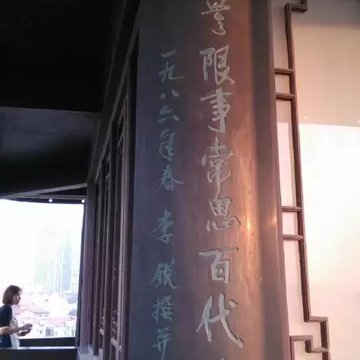 限事常思百代
一九八六年春 李锐撰并